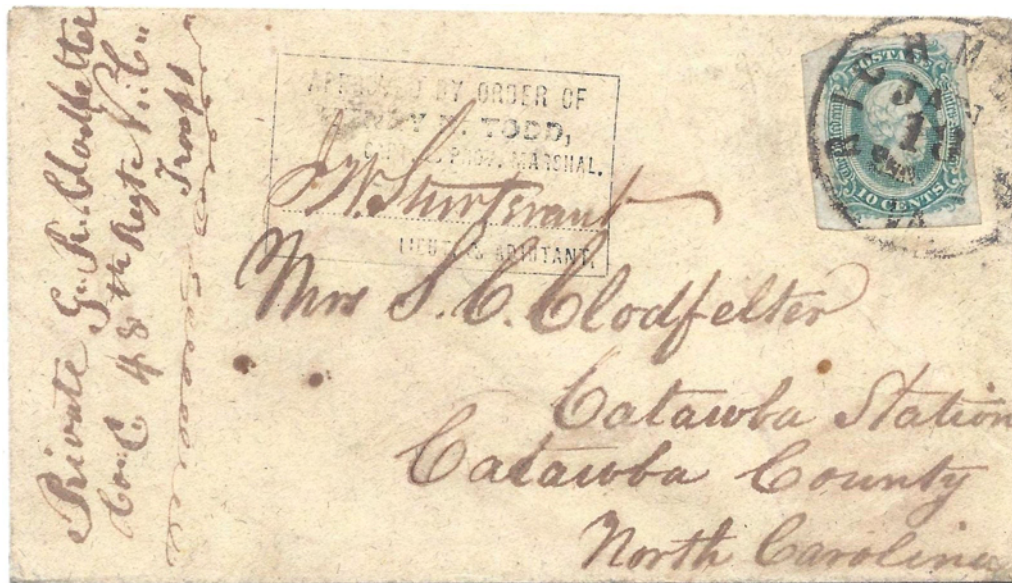 Private G. R. Clodfelter
Co. C 48th Regt N. C.
Troops
APPROVED BY ORDER OF
TODD,
PROV. MARSHAL.
J. W. Sturtevant
LIEUT. & ADJUTANT.
POSTAGE
10 CENTS
JAN
Mrs S. C. Clodfelter
Catawba Station
Catawba County
North Carolina